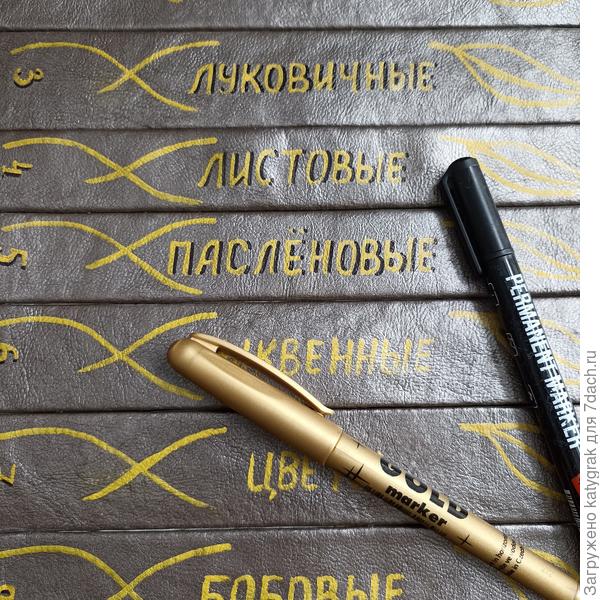 3 ЛУКОВИЧНЫЕ
4 ЛИСТОВЫЕ
5 ПАСЛЁНОВЫЕ
6 КВЕННЫЕ
7 ЦВЕТ
8 БОБОВЫЕ
PERMANENT MARKER
GOLD
marker
Загружено katygrak для 7dach.ru